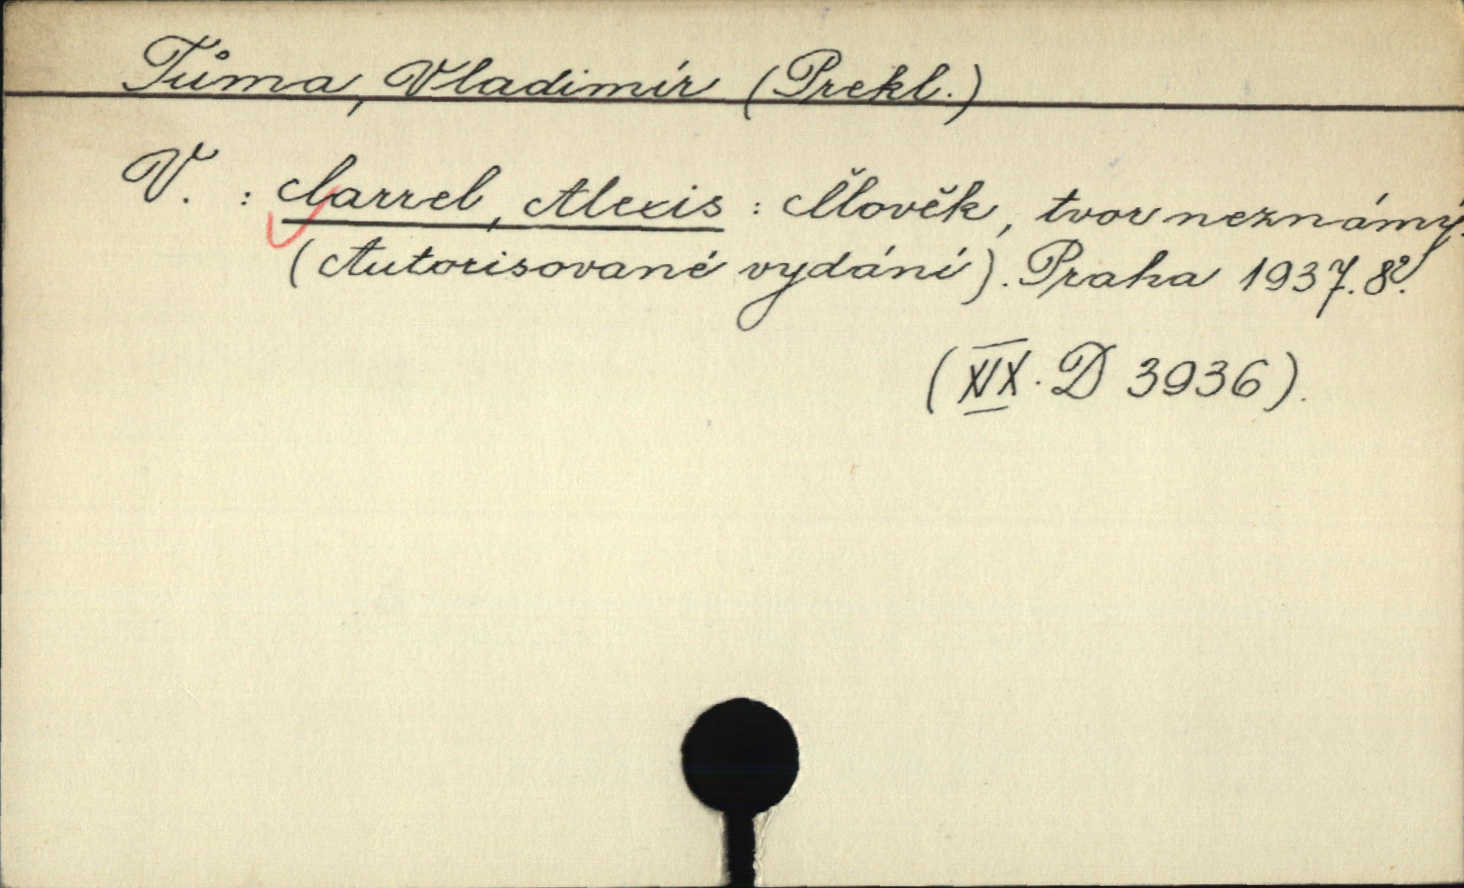 Tůma, Vladimír (Prekl.)
V. : Carrel, Alexis : Člověk, tvor neznámý.
(Autorisované vydání). Praha 1937. 8º.
(XIX. D 3936).